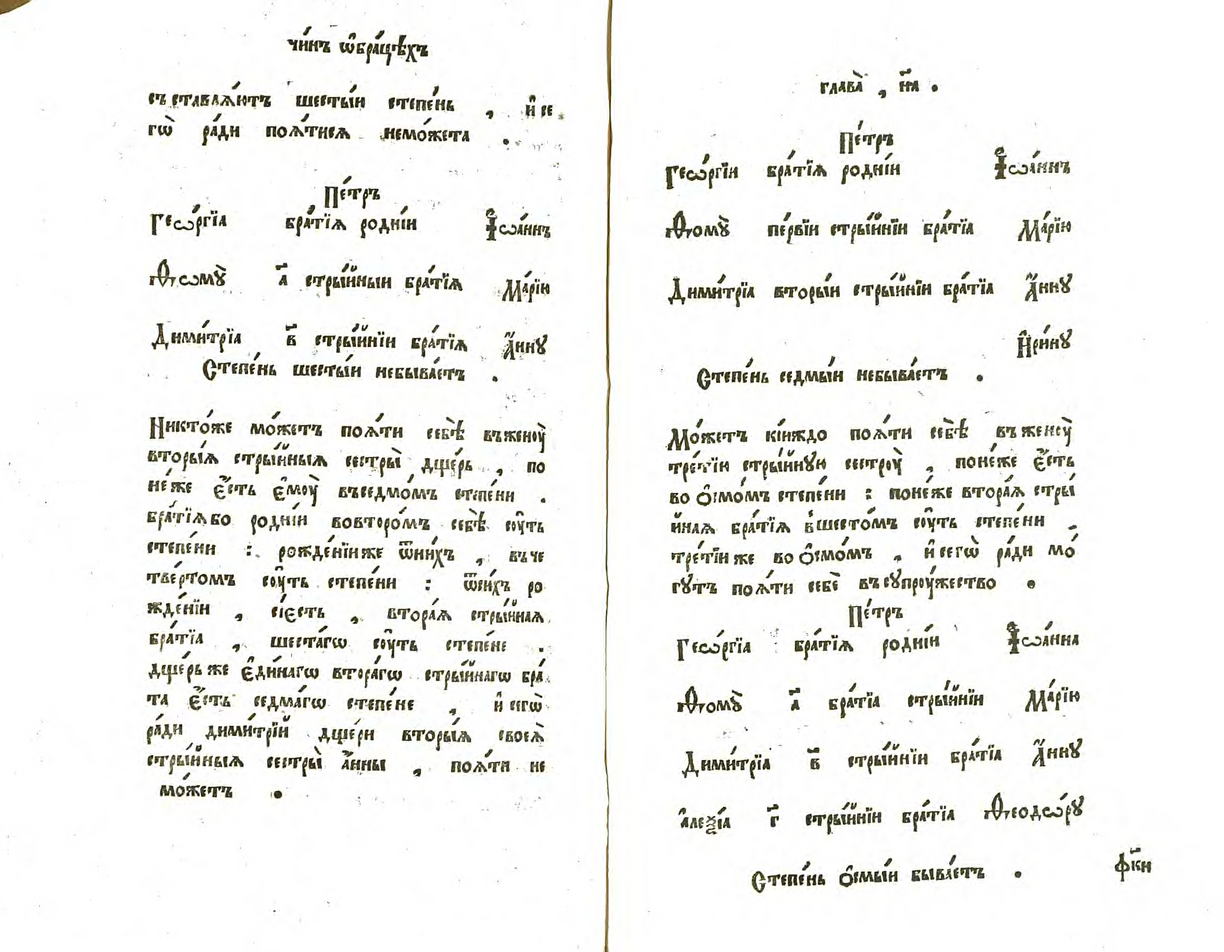 чи́нъ ѡ҆бра́цѣхъ
съставлѧ́ютъ шесты́и степе́нь , и҆ се
гѡ̀ ра́ди поѧ́тисѧ немо́жета .
Пе́тръ
Геѡ́ргїа бра́тїѧ родні́и І҆ѡа́ннъ
Ѳѡмꙋ̀ а҃ стры́йныи бра́тїѧ Марі́ю
Дими́трїа в҃ стры́йнїи бра́тїѧ А҆́ннꙋ
Степе́нь шесты́и небыва́етъ .
Никто́же мо́жетъ поѧ́ти себѣ̀ въженоу̀
вторы́ѧ стры́йныѧ сестры̀ дще́рь , по
не́же є҆́сть є҆моу̀ въседмо́мъ степе́ни .
бра́тїѧбо родні́и вовторо́мъ себѣ̀ соу́ть
степе́ни : рожде́нїиже ѿни́хъ , въче
тве́ртомъ соу́ть степе́ни : ѿси́хъ ро
жде́нїи , сїе́сть , втора́ѧ стры́йнаѧ
бра́тїа , шеста́гѡ соу́ть степе́не .
дще́рь же є҆ди́нагѡ втора́гѡ стры́йнагѡ бра́
та є҆́сть седма́гѡ степе́не , и҆ сегѡ̀
ра́ди дими́трїй дще́ри вторы́ѧ своеѧ̀
стры́йныѧ сестры̀ а҆́нны , поѧ́ти не
мо́жетъ .
глава̀ , н҃а .
Пе́тръ
Геѡ́ргїи бра́тїѧ родні́и І҆ѡа́ннъ
Ѳомꙋ̀ пе́рвїи стры́йнїи бра́тїа Марі́ю
Дими́трїа вторы́и стры́йнїи бра́тїа А҆́ннꙋ
И҆ри́нꙋ
Степе́нь седмы́и небыва́етъ .
Мо́жетъ кі́иждо поѧ́ти себѣ̀ въженоу̀
тре́тїи стры́йнꙋю сестроу̀ , поне́же є҆́сть
во ѻ҆смо́мъ степе́ни : поне́же втора́ѧ стры́
йнаѧ бра́тїа в̾шесто́мъ соу́ть степе́ни
тре́тїи же во ѻ҆смо́мъ , и҆ сегѡ̀ ра́ди мо́
гꙋтъ поѧ́ти себѐ въсꙋпроу́жество .
Пе́тръ
Геѡ́ргїа бра́тїѧ родні́и І҆ѡа́нна
Ѳомꙋ̀ а҃ бра́тїа стры́йнїи Марі́ю
Дими́трїа в҃ стры́йнїи бра́тїа А҆́ннꙋ
а҆леѯі́а г҃ стры́йнїи бра́тїа Ѳеодѡ́рꙋ
Степе́нь ѻ҆смы́и быва́етъ .
ф҃ки